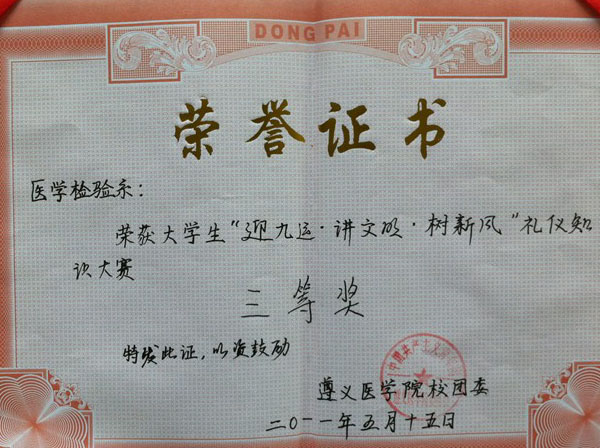 DONG PAI
荣誉证书
医学检验系:
荣获大学生“迎九运·讲文明·树新风”礼仪知
识大赛
三等奖
特发此证,以资鼓励
遵义医学院校团委
二〇一一年五月十五日